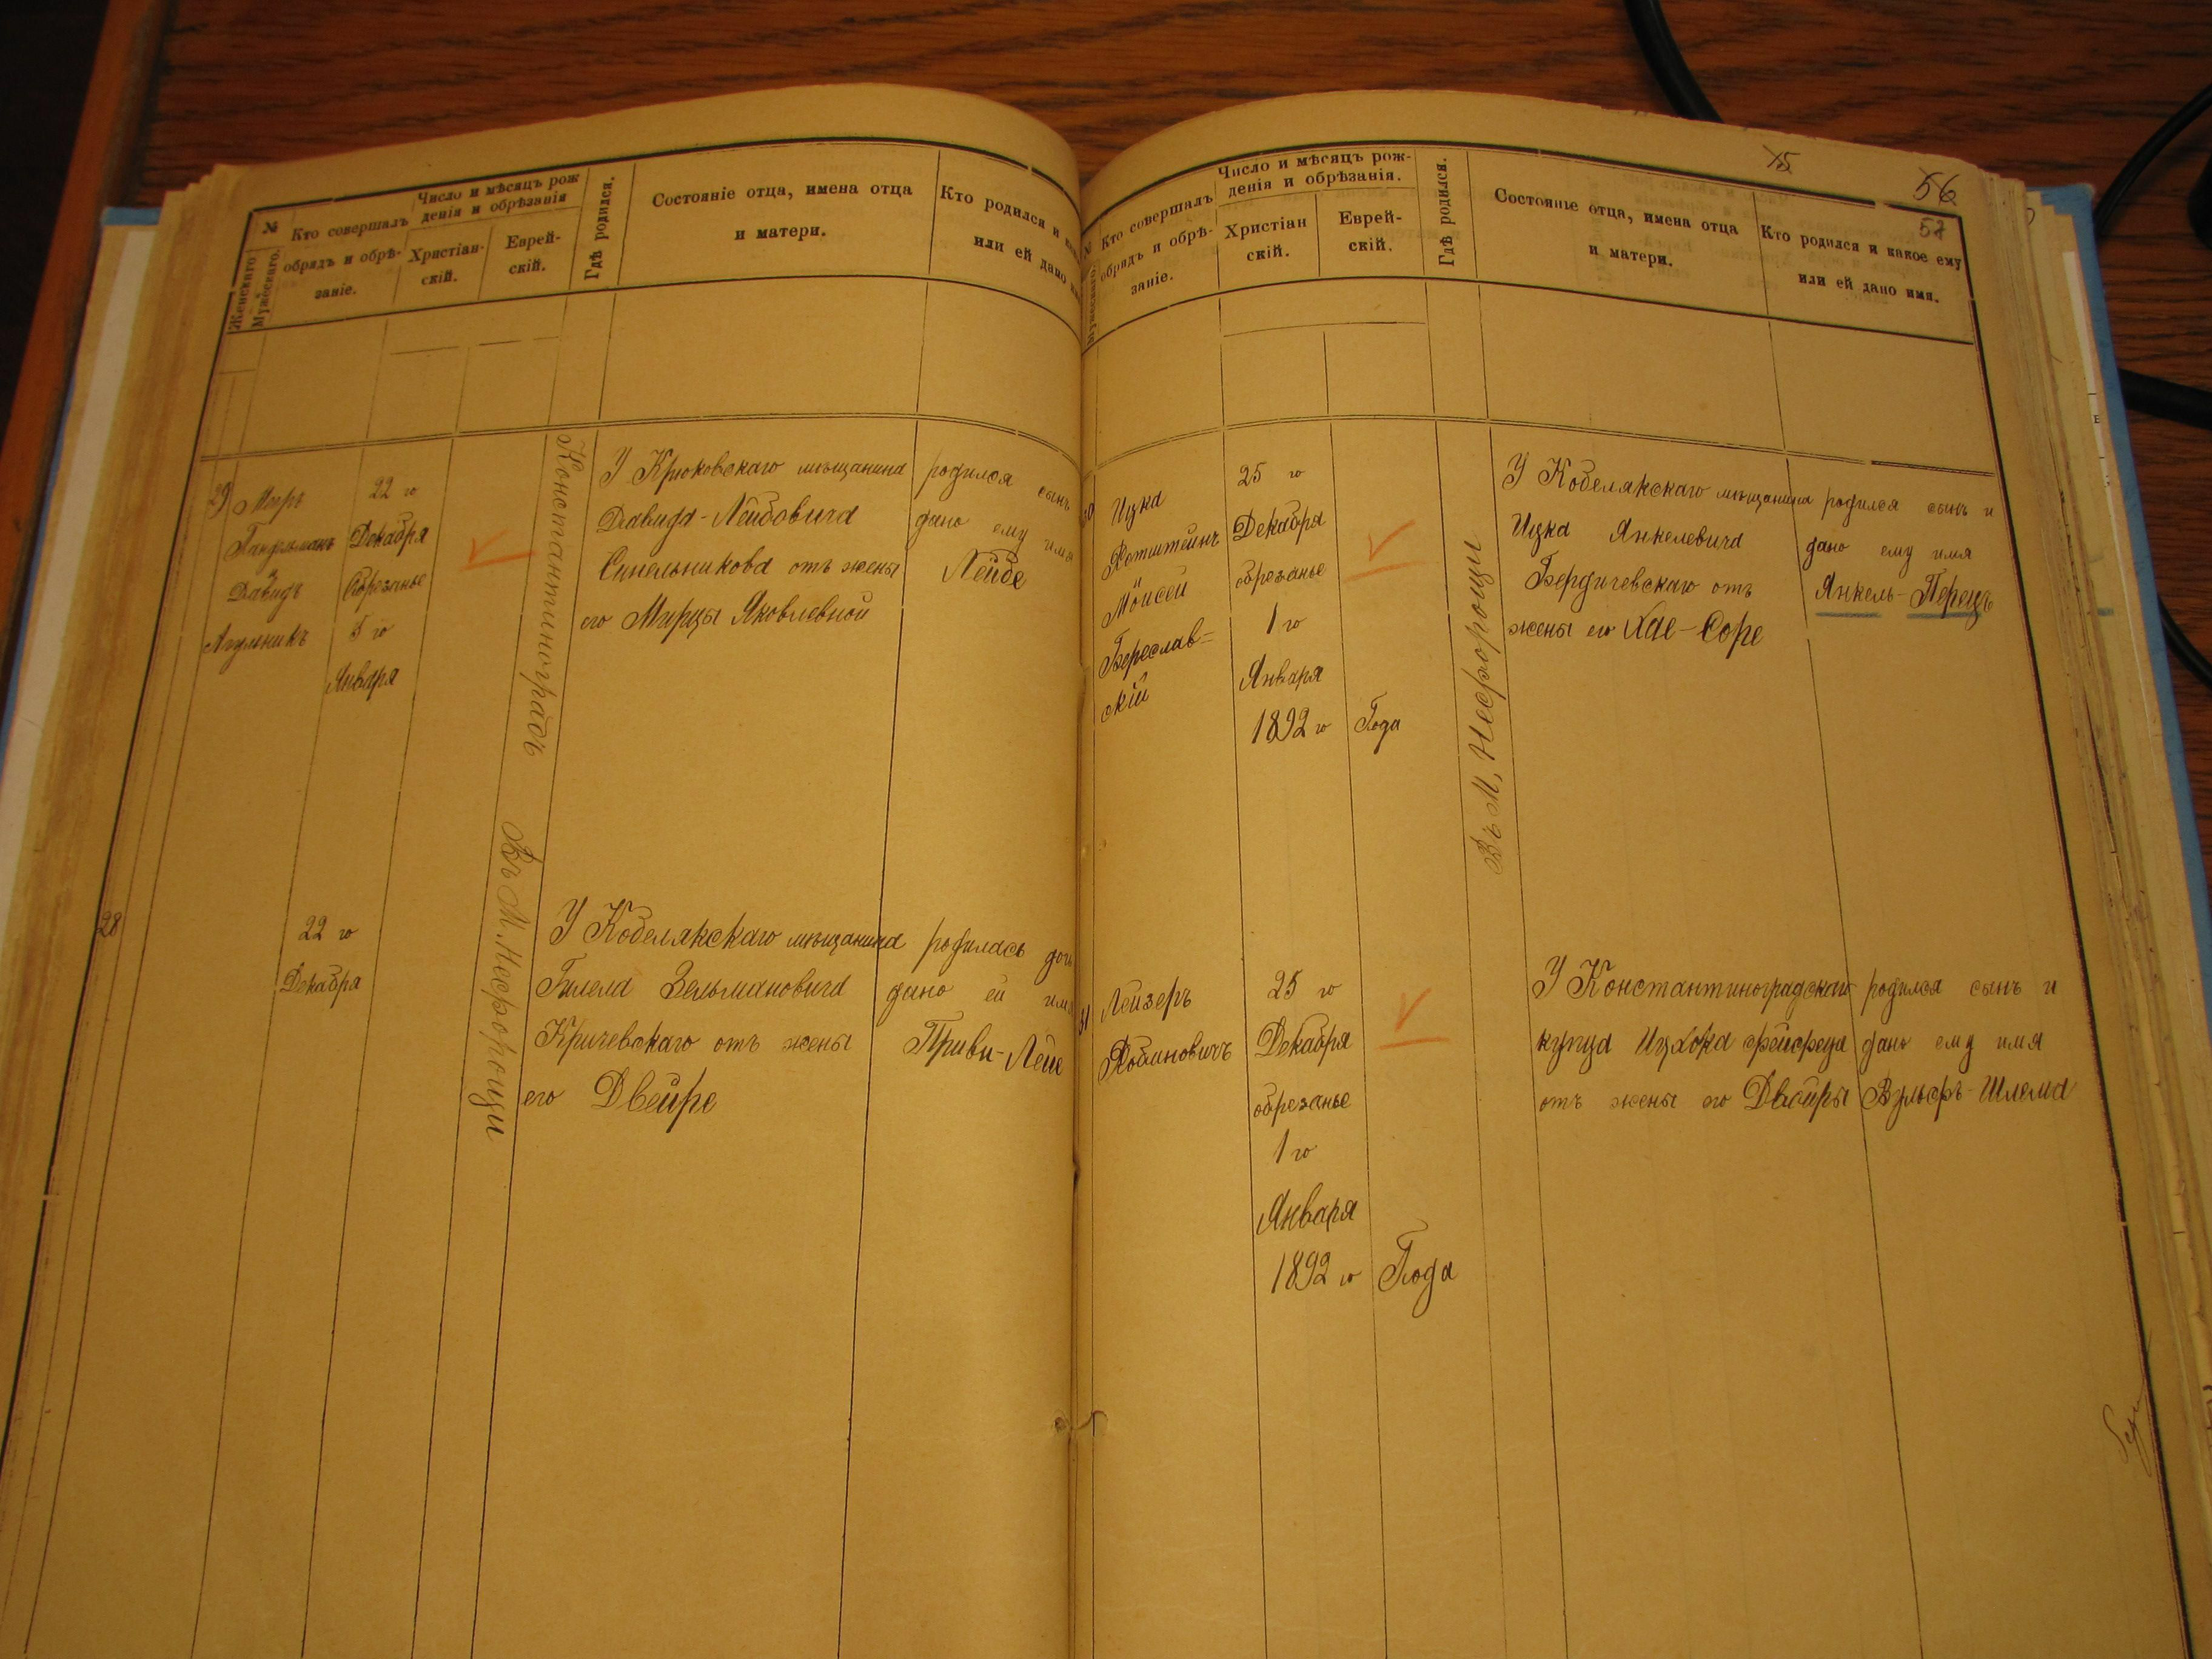 №
Женскаго
Мужескаго.
Кто совершалъ
обрядъ и обрѣ-
заніе.
Число и мѣсяцъ рож
денія и обрѣзанія
Христіан-
скій.
Еврей-
скій.
Гдѣ родился.
Состояніе отца, имена отца
и матери.
Кто родился и
или ей дано
29
Меръ
Гандельманъ
и
Давидъ
Агульникъ
22 го
Декабря
Обрезанье
5 го
Января
Константиноградъ
У Крюковскаго мещанина
Давида-Лейбовича
Синельникова отъ жены
его Мирцы Яковлевной
родился сынъ
дано ему имя
Лейбе
28
22 го
Декабря
Въ М. Нефорощи
У Кобелякскаго мещанина
Гилела Зельмановича
Кричевскаго отъ жены
его Двейре
родилась дочь
дано ей имя
Приви-Лее
15
56
57
№
Кто совершалъ
обрядъ и обрѣ-
заніе.
Число и мѣсяцъ рож-
денія и обрѣзанія.
Христіан
скій.
Еврей-
скій.
Гдѣ родился.
Состояніе отца, имена отца
и матери.
Кто родился и какое ему
или ей дано имя.
30
Ицка
Ротштейнъ
Мойсей
Береслав-
скій
25 го
Декабря
обрезанье
1 го
Января
1892 го Года
Въ М, Нефорощи
У Кобелякскаго мещанина
Ицка Янкелевича
Бердичевскаго отъ
жены его Хае-Соре
родился сынъ и
дано ему имя
Янкель-Перецъ
31
Лейзеръ
Рабиновичъ
25 го
Декабря
обрезанье
1 го
Января
1892 го Года
У Константиноградскаго
купца Ицхока
отъ жены его Двойры
родился сынъ и
дано ему имя
Вульфъ-Шлема